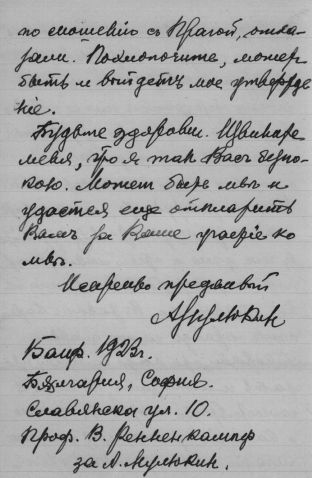 по сношенію съ Прагой, отка-
зали. Похлопочите, может
быть и выйдетъ мое утвержде
ніе.
Будьте здоровы. Извините
меня, что я такъ Васъ безпо-
кою. Может быть мнѣ и
удастся еще отплатить
Вамъ за Ваше участіе ко
мнѣ.
Искренно преданный
6 апр. 1923 г.
Болгарія, Софія.
Славянска ул. 10.
Проф. В. Ренненкампф
за А. Мулюкин.